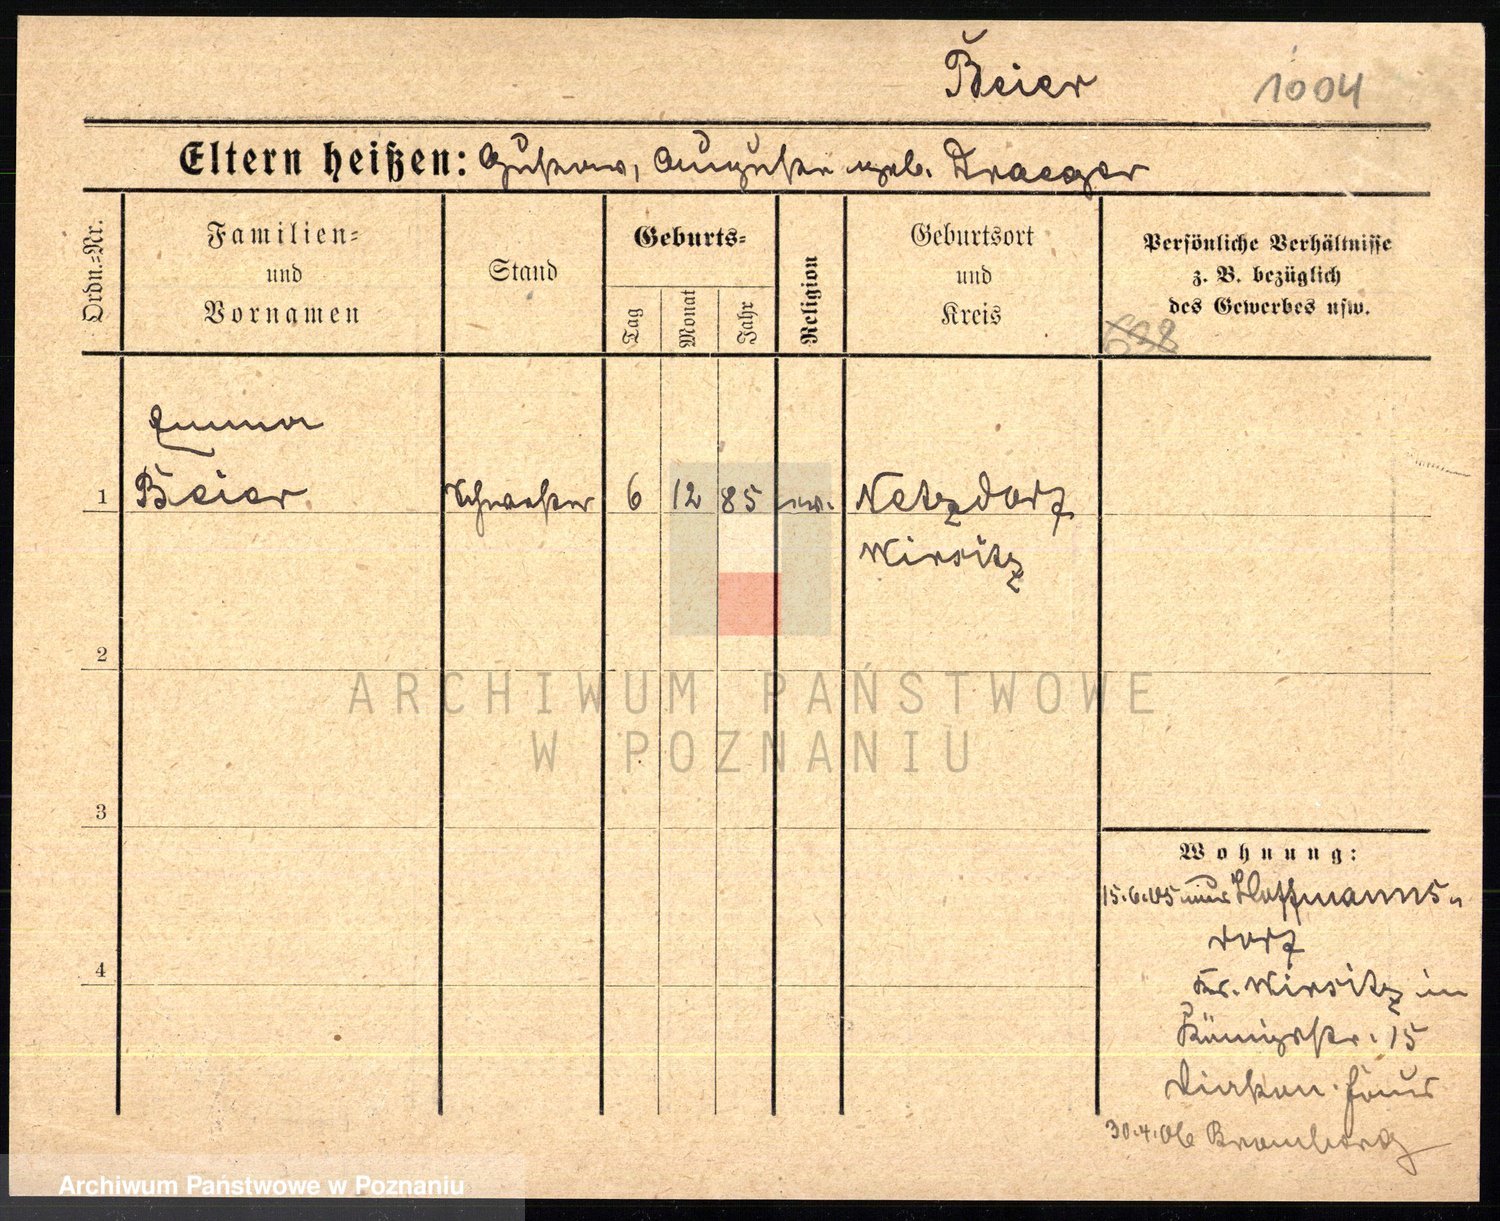 Beier 1004
Eltern heißen: Gustav, Auguste geb. Draeger
Ordn.=Nr.
Familien=
und
Vornamen
Stand
Geburts=
Tag
Monat
Jahr
Religion
Geburtsort
und
Kreis
Persönliche Verhältnisse
z. B. bezüglich
des Gewerbes usw.
Emma
1 Beier Schwester 6 12 85 ev. Netzdorf
Wirsitz
2
3
4
Wohnung:
15.6.05 aus Hoffmanns-
dorf
Kr. Wirsitz in
Königstr. 15
Diakon. Haus
30.4.06 Bromberg
ARCHIWUM PAŃSTWOWE
W POZNANIU
Archiwum Państwowe w Poznaniu